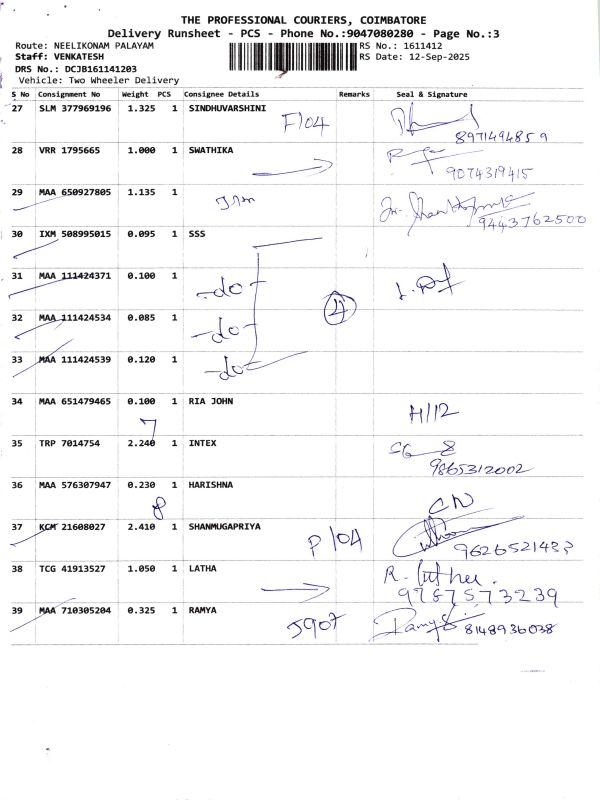 THE PROFESSIONAL COURIERS, COIMBATORE
Delivery Runsheet - PCS - Phone No.:9047080280 - Page No.:3
Route: NEELIKONAM PALAYAM RS No.: 1611412
Staff: VENKATESH RS Date: 12-Sep-2025
DRS No.: DCJB161141203
Vehicle: Two Wheeler Delivery
S No Consignment No Weight PCS Consignee Details Remarks Seal & Signature
27 SLM 377969196 1.325 1 SINDHUVARSHINI
F104
8971494859
28 VRR 1795665 1.000 1 SWATHIKA
9074319415
29 MAA 650927805 1.135 1
9443762500
30 IXM 508995015 0.095 1 SSS
31 MAA 111424371 0.100 1
-do-
4
32 MAA 111424534 0.085 1
-do-
33 MAA 111424539 0.120 1
-do-
34 MAA 651479465 0.100 1 RIA JOHN
H112
7
35 TRP 7014754 2.240 1 INTEX
9865312002
36 MAA 576307947 0.230 1 HARISHNA
8
37 KCM 21608027 2.410 1 SHANMUGAPRIYA
P104
38 TCG 41913527 1.050 1 LATHA
9787573239
39 MAA 710305204 0.325 1 RAMYA
J907
8148936038